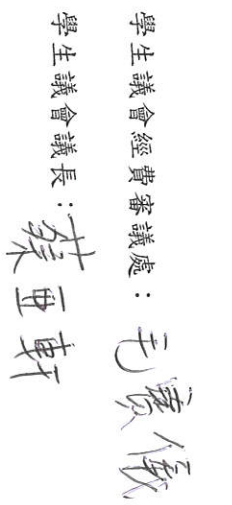 學生議會經費審議處：毛
學生議會議長：蔡亞軒